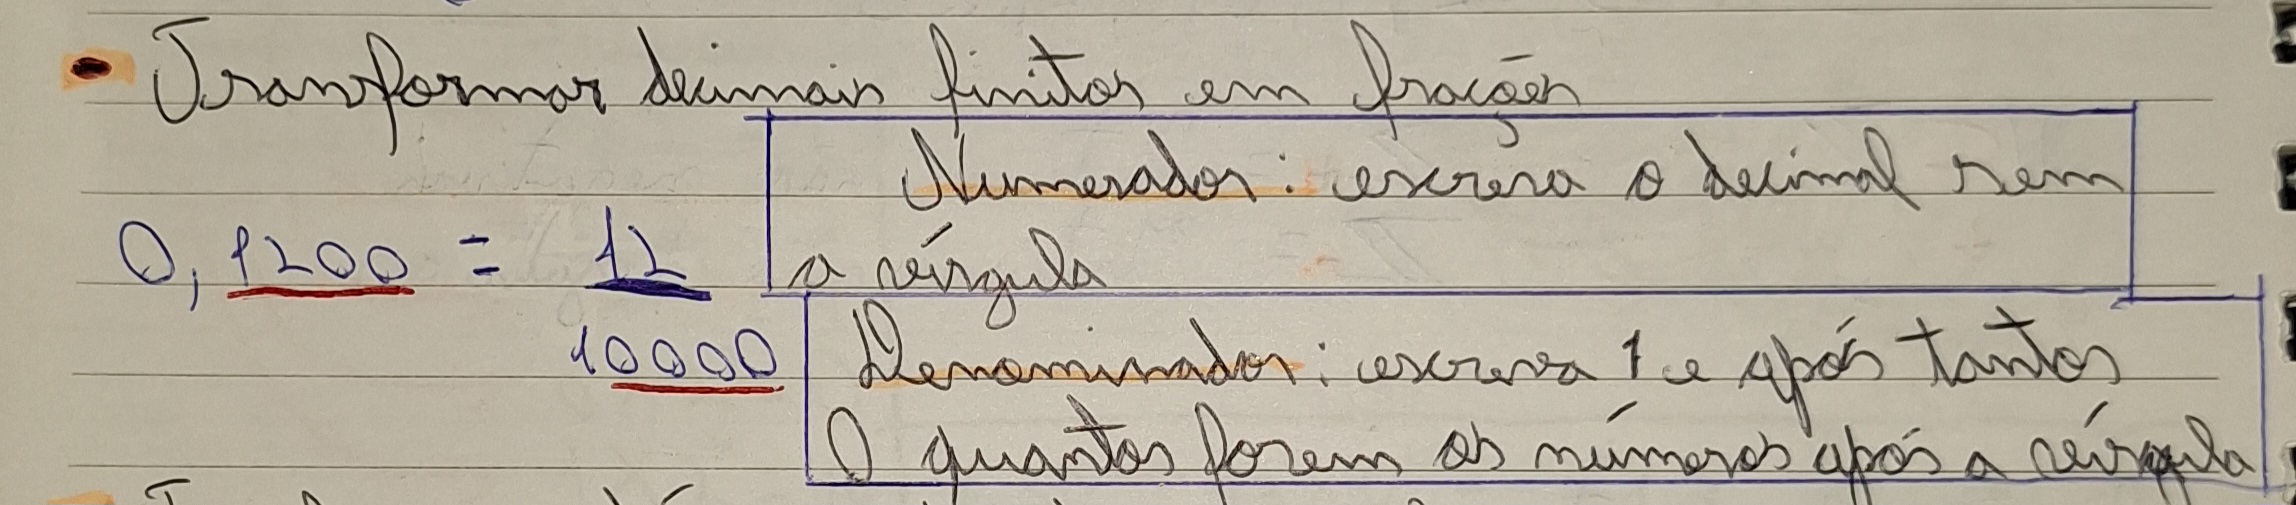 • Transformar decimais finitos em frações
Numerador: escreva o decimal sem
a vírgula
0,1200 = 12
10000
Denominador: escreva 1 e após tantos
0 quantos forem os números após a vírgula